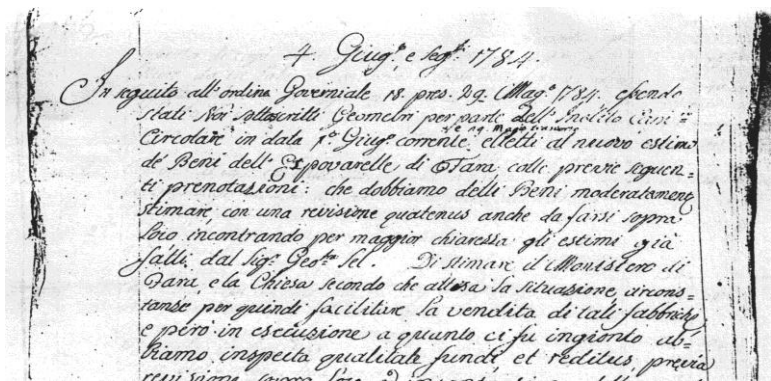 4. Giug.º e Seg.ti 1784.
In seguito all'ordine Governiale 18. pres. 29. Mag.º 1784. essendo
stati Noi sottoscritti Geometri per parte dell'Inclito Cari=
Circolare in data p.º Giug.º corrente, eletti al nuovo estimo
e 29. Magio trascorso
de' Beni dell'Expovarelle di Fara colle previe seguen=
ti prenotazioni: che dobbiamo delli Beni moderatament
stimare, con una revisione quatenus anche da farsi sopra
loco incontrando per maggior chiaressa gli estimi già
fatti dal Sig.r Geo.tra Sel. Di stimare il Monistero di
Fara, e la Chiesa secondo che attesa la situasione, circons=
tanse per quindi facilitare la vendita di tali fabbriche
e però in esecusione a quanto ci fu ingionto ab=
biamo, inspecta qualitate fundi, et reditus, previa
revisione sopra loco